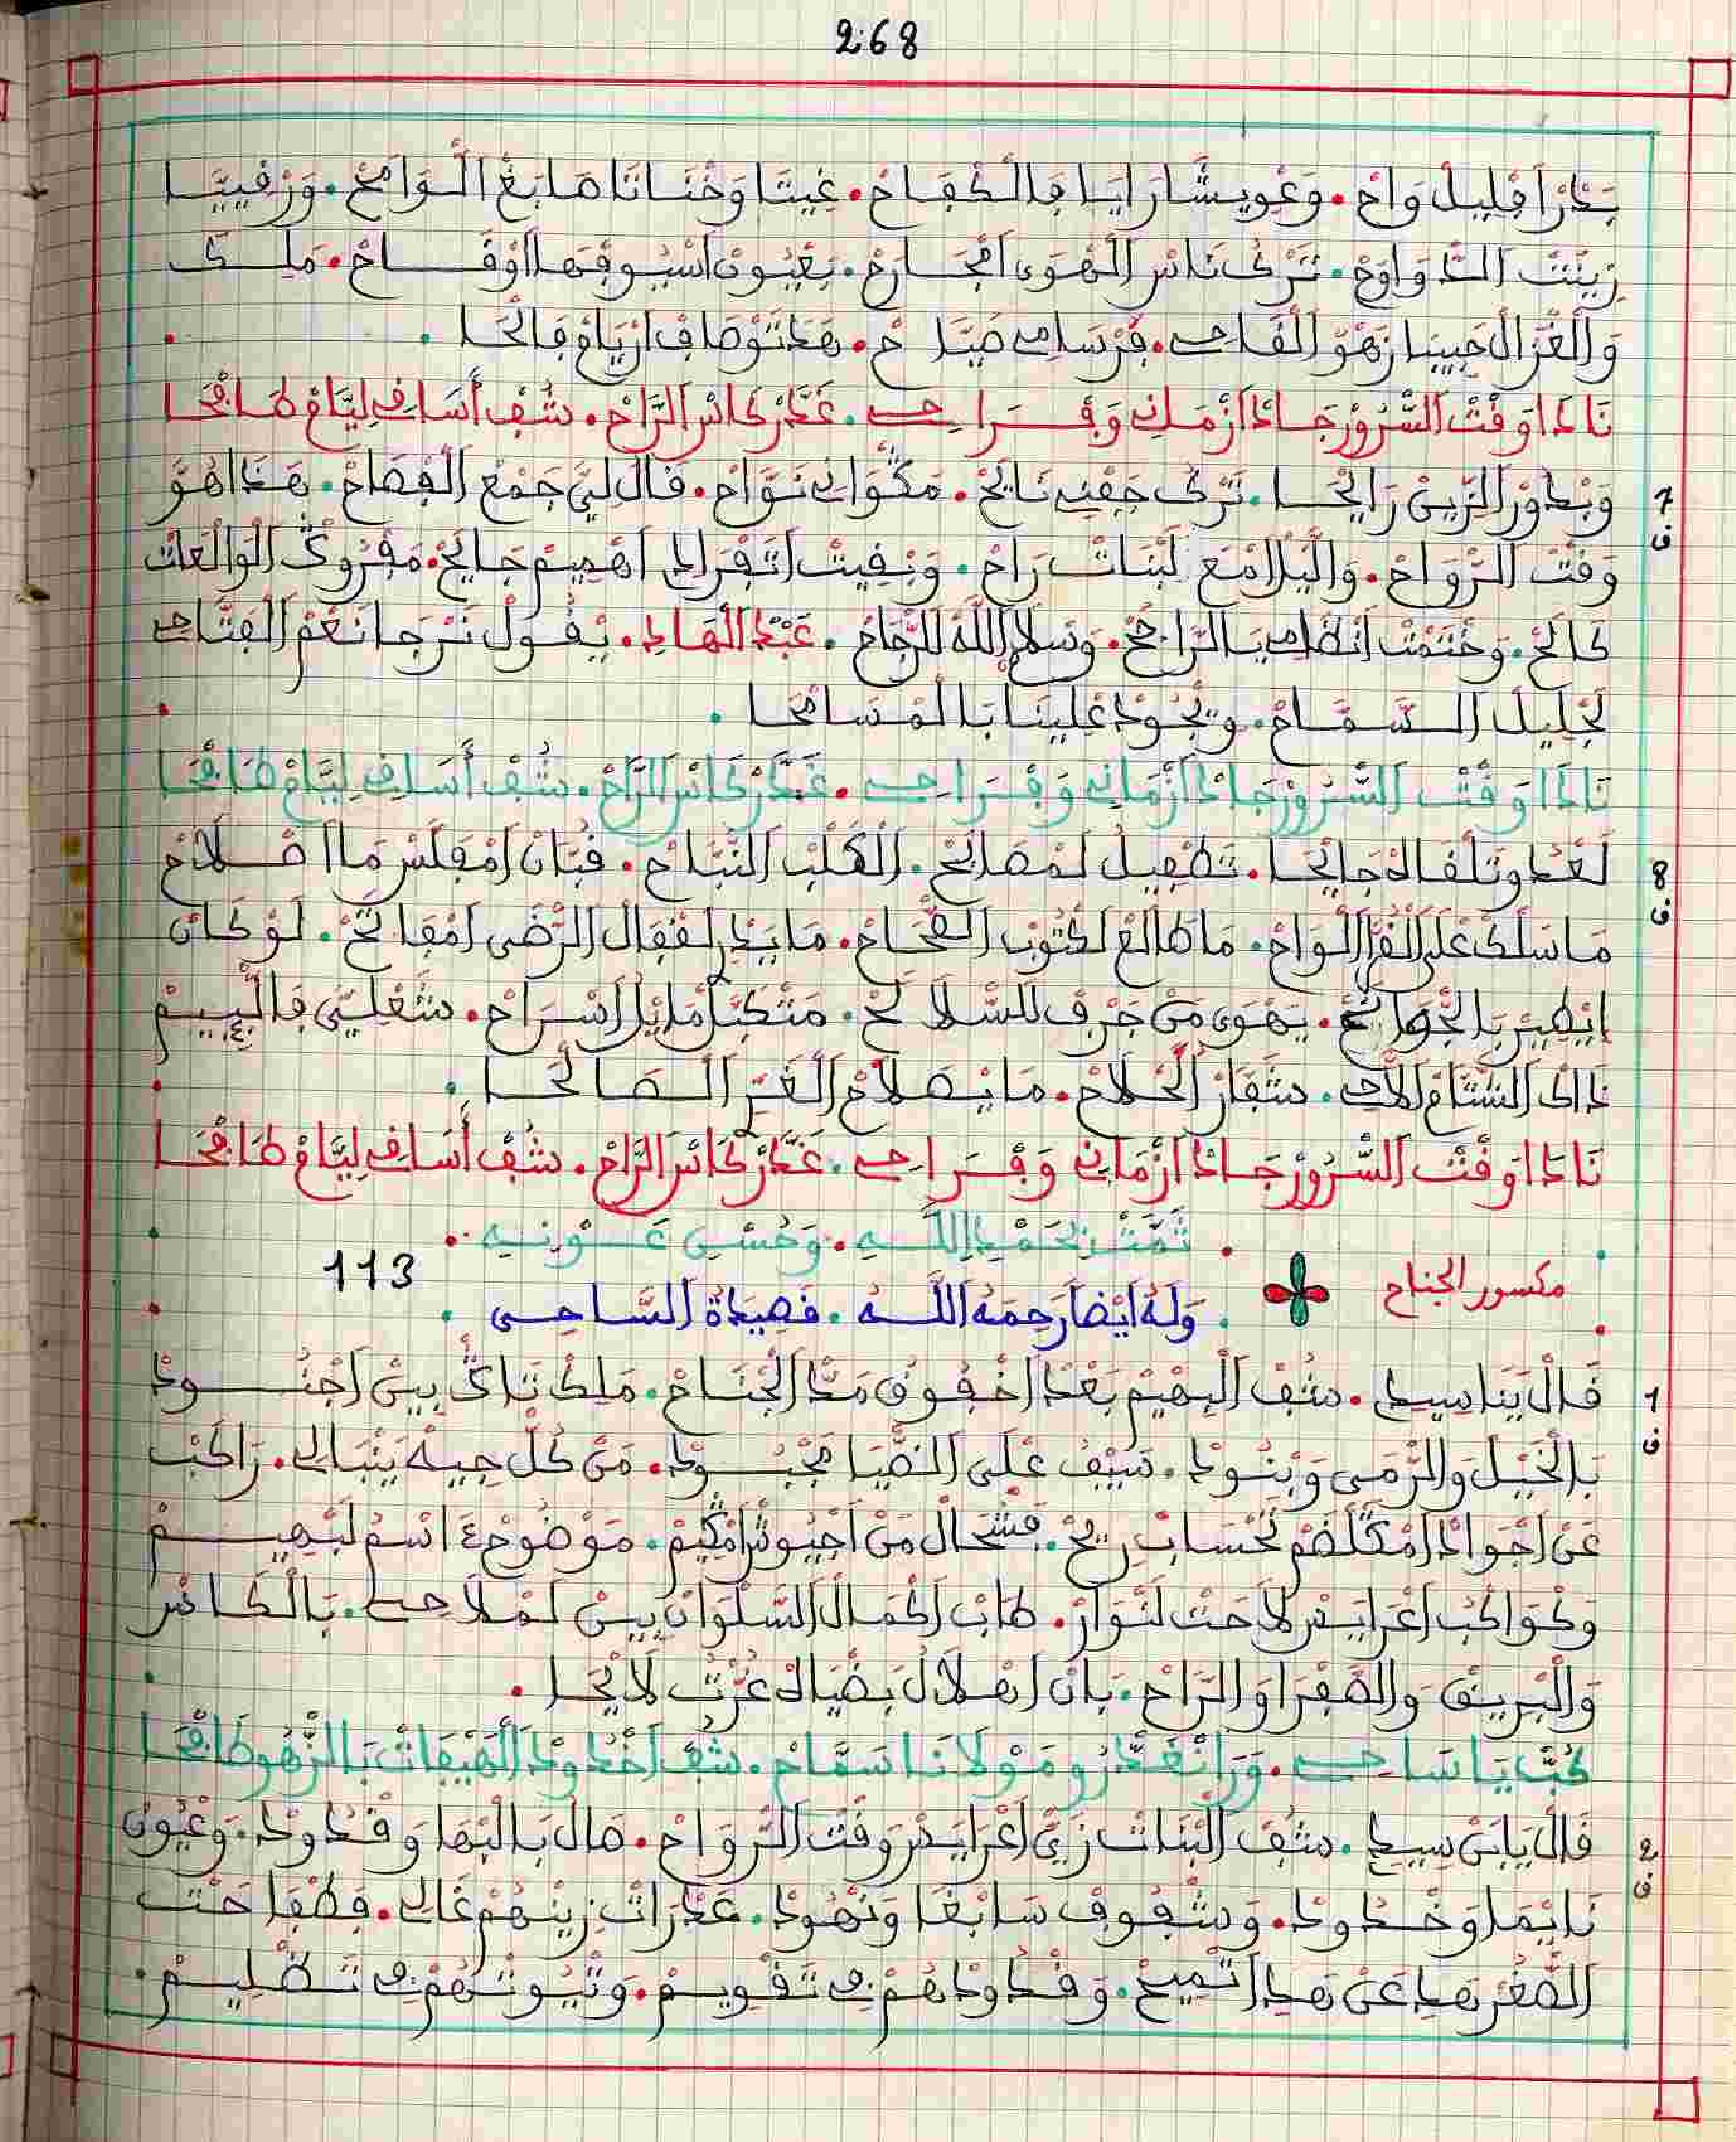 268
بَدْرْ اقْلِيلْ وَاحْ. وَعْوِيشَّارَايَا فَالْكْفَاحْ. غِيتَا وَخْنَاتَا هَا بَغْ الْوَامَحْ. وَرْقِيَّا
زِينْتْ الدّْوَاوَحْ. تَرْكْ نَاسْ الْهْوَى امْجَارَحْ. بَعْيُونْ اسْيُوفْهَا اوْقَاحْ. مَلِكَ
وَالْغْزَالْ حَبِيبَا زَهْوْ الْقَاحِي. فَرْسَامِي صَيَّاحْ. هَذَ تَوْصَافْ ارْيَامْ فَالْحَا.
نَادَا وَقْتْ السّْرُورْ جَادْ ازْمَانِي وَفْرَاحِي. غَدَّرْ كَاسْ الرَّاحْ. شُفْ أَسَاقِي لِيَّامْ طَافْحَا
7
ف
وَبْدُورْ الزِّينْ رَايْحَا. تَرْكْ جَفْنِي نَايَحْ. مَكْوَانِي نَوَّاحْ. قَالْ لِيَّ جَمْعْ الْفْصَاحْ. هَذَا هُوَّ
وَقْتْ الرّْوَاحْ. وَالَّيْلَا مْعَ لَبْنَاتْ رَاحْ. وَبْقِيتْ اتَفْرَادِي اهْمِيمْ جَايَحْ. مَفْرُوكْ الْوَالْعَاتْ
كَالَحْ. وَخْتَمْتْ انْظَامِي بَالرَّاجَحْ. وَسْلَامْ اللَّهْ لَلرْجَاحْ. عَبْدْ الْهَادِي. يْقُولْ نَرْجَا نَعْمْ الْفَتَّاحِي
لَجْلِيلْ السَّمَّاحْ. وِيْجُودْ عْلِينَا بَالْمْسَامْحَا.
نَادَا وَقْتْ السّْرُورْ جَادْ ازْمَانِي وَفْرَاحِي. غَدَّرْ كَاسْ الرَّاحْ. شُفْ أَسَاقِي لِيَّامْ طَافْحَا
8
ف
لَعْدُو تَلْقَاهْ جَايْحَا. تَطْفِيلْ لَمْصَالَحْ. الْكَلْبْ النَّبَّاحْ. فُبَانْ امْفَلَّسْ مَا اصْلَاحْ
مَا سْلَكْ عْلَى الْفْرَا الْوَاحْ. مَا طَالَعْ لَكْتُوبْ الصّْحَاحْ. مَا بِيدُ لَقْفَالْ الرّْضَى امْفَاتَحْ. لَوْ كَانْ
ايْطِيرْ بَالْجْوَانَحْ. يَهْوَى مَنْ جَرْفْ لَلسّْلَالَحْ. مَتْكَبَّلْ مَايْلُ اسْرَاحْ. شَعْلِيَّ فَالْبِيمْ
ذَاكْ الشَّتَّامْ الَّاحِي. شَفَّارْ الْحْلَاحْ. مَا يَصْلَاحْ الْغَرّْ الصَالْحَا.
نَادَا وَقْتْ السّْرُورْ جَادْ ازْمَانِي وَفْرَاحِي. غَدَّرْ كَاسْ الرَّاحْ. شُفْ أَسَاقِي لِيَّامْ طَافْحَا
تَمَّتْ بِحَمْدِ اللَّهِ. وَحُسْنِ عَوْنِهِ.
مكسور الجناح
وَلَهُ أَيْضاً رَحِمَهُ اللَّهُ. قَصِيدَةُ السَّاحِي. 113
1
ف
قَالْ يَنَا سِيدِي. شُفْ الْبْهِيمْ بَعْدْ اخْفُوقْ مَدّْ الْجْنَاحْ. مَلِكْ تَاكِي بِينْ اجْنُودُ
بَالْخَيْلْ وَالرّْمَى وَبْنُودُ. سَيْفُ عْلَى الضّْيَا مَجْبُودُ. مَنْ كُلّْ جِيهْ يَنْبَالِي. رَاكَبْ
عَنْ اجْوَادْ امْكَلْضَمْ تَحْسَابْ رِيحْ. فَشْحَالْ مَنْ اجْيُوشْ امْكِيمْ. مَوْضُوعْ اسْمُ لَبْهِيمْ
وَكْوَاكْبُ اعْرَايَسْ لَاحَتْ لَنْوَارْ. طَابْ اكْمَالْ السّْلْوَانْ بِينْ لَمْلَاحِي. بَالْكَاسْ
وَالْبْرِيقْ وَالصَّفْرَا وَالرَّاحْ. بَانْ اهْلَالُ بَضْيَاهْ عُرَّتُ لَايْحَا.
كُبّْ يَا سَاحِي. وَرَا نْغَدْرُو مَوْلَانَا سَمَّاحْ. شُفْ اخْدُودْ الْهِيفَاتْ بَالزّْهُو طَافْحَا
2
ف
قَالْ يَابَنْ سِيدِي. شُفْ الْبْنَاتْ زَيّْ اعْرَايَسْ وَقْتْ الرّْوَاحْ. مَالْ بَالْبْهَا وَقْدُودُ. وَعْيُونْ
نَايْمَا وَخْدُودُ. وَشْفُوفْ سَابْغَا وَنْهُودُ. عَدْرَاتْ زِينْهُمْ غَالِي. فَطْفَاحَتْ
الصّْغُرْ هَادَا عَنْ هَادَا اتْمِيحْ. وَقْدُودْهُمْ فِي تَقْوِيمْ. وَتْيُوتْهُمْ فِي تَظْلِيمْ.